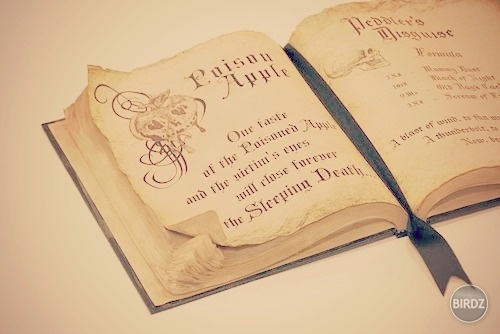 Poison
Apple
One taste
of the Poisoned Apple
and the victim's eyes
will close forever
the Sleeping Death.
Peddler's
Disguise
Formula
Mummy Dust
Black of Night
Old Hag's
Scream of
A blast of wind, to fan
A thunderbolt,
Now,
BIRDZ